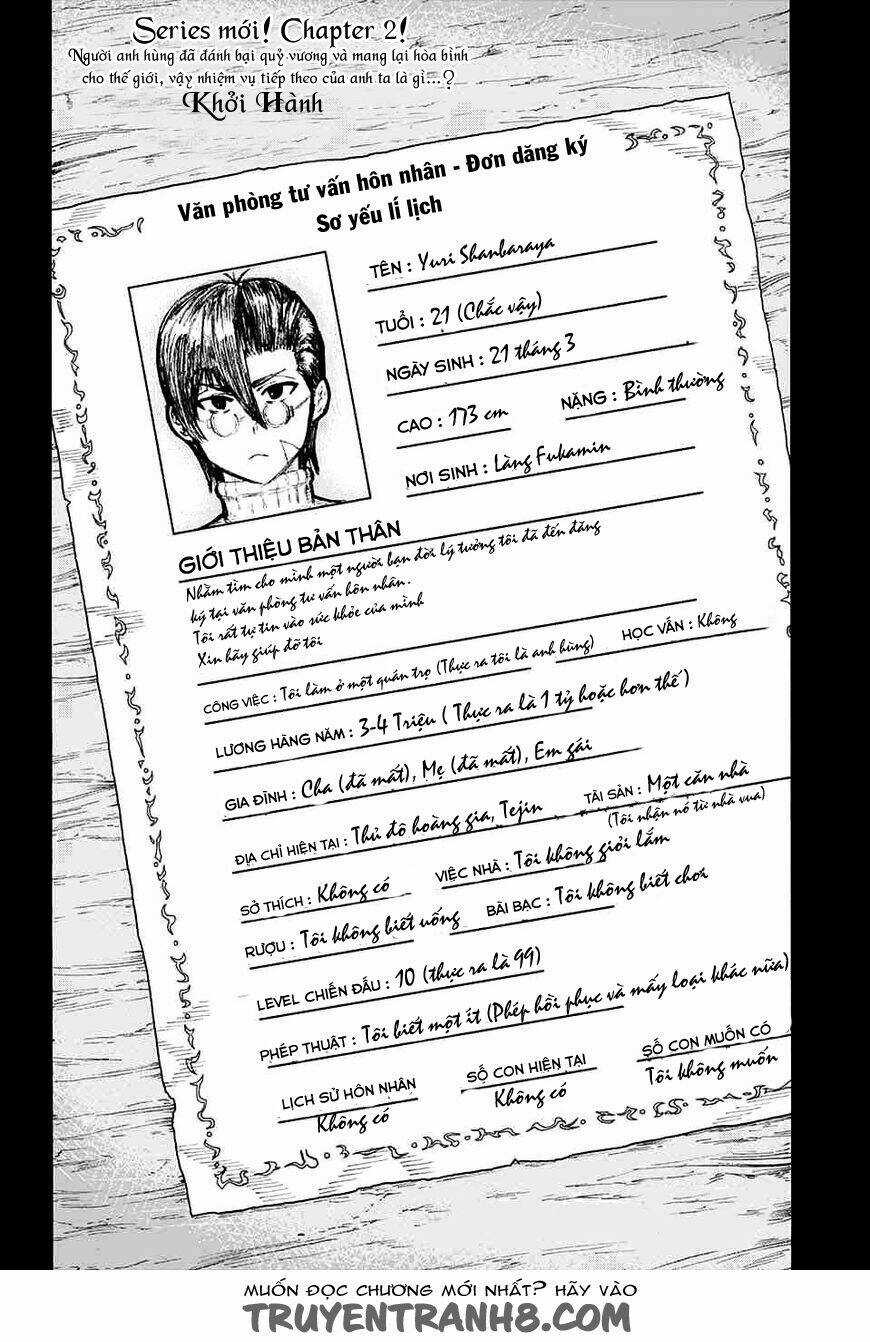 Series mới! Chapter 2!
Người anh hùng đã đánh bại quỷ vương và mang lại hòa bình
cho thế giới, vậy nhiệm vụ tiếp theo của anh ta là gì...?
Khởi Hành
Văn phòng tư vấn hôn nhân - Đơn dăng ký
Sơ yếu lí lịch
TÊN : Yuri Shanbaraya
TUỔI : 21 (Chắc vậy)
NGÀY SINH : 21 tháng 3
CAO : 173 cm
NẶNG : Bình thường
NƠI SINH : Làng Fukamin
GIỚI THIỆU BẢN THÂN
Nhằm tìm cho mình một người bạn đời lý tưởng tôi đã đến đăng
ký tại văn phòng tư vấn hôn nhân.
Tôi rất tự tin vào sức khỏe của mình
Xin hãy giúp đỡ tôi
CÔNG VIỆC : Tôi làm ở một quán trọ (Thực ra tôi là anh hùng)
HỌC VẤN : Không
LƯƠNG HÀNG NĂM : 3-4 Triệu ( Thực ra là 1 tỷ hoặc hơn thế )
GIA ĐÌNH : Cha (đã mất), Mẹ (đã mất), Em gái
ĐỊA CHỈ HIỆN TẠI : Thủ đô hoàng gia, Tejin
TÀI SẢN : Một căn nhà
(Tôi nhận nó từ nhà vua)
SỞ THÍCH : Không có
VIỆC NHÀ : Tôi không giỏi lắm
RƯỢU : Tôi không biết uống
BÀI BẠC : Tôi không biết chơi
LEVEL CHIẾN ĐẤU : 10 (thực ra là 99)
PHÉP THUẬT : Tôi biết một ít (Phép hồi phục và mấy loại khác nữa)
LỊCH SỬ HÔN NHÂN
Không có
SỐ CON HIỆN TẠI
Không có
SỐ CON MUỐN CÓ
Tôi không muốn
MUỐN ĐỌC CHƯƠNG MỚI NHẤT? HÃY VÀO
TRUYENTRANH8.COM